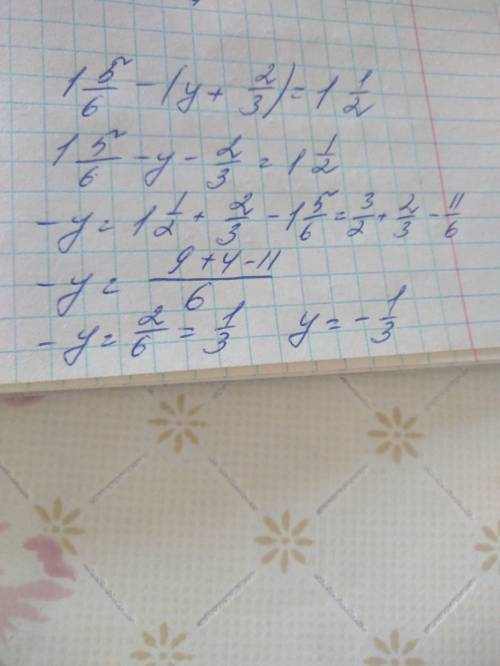 1 5/6 - (y + 2/3) = 1 1/2
1 5/6 - y - 2/3 = 1 1/2
- y = 1 1/2 + 2/3 - 1 5/6 = 3/2 + 2/3 - 11/6
- y = (9 + 4 - 11)/6
- y = 2/6 = 1/3 y = - 1/3